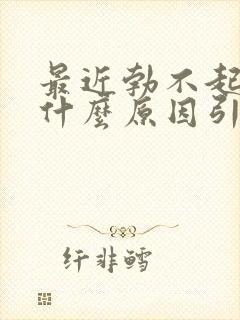 最近勃不起
什麼原因引
纤非鳕